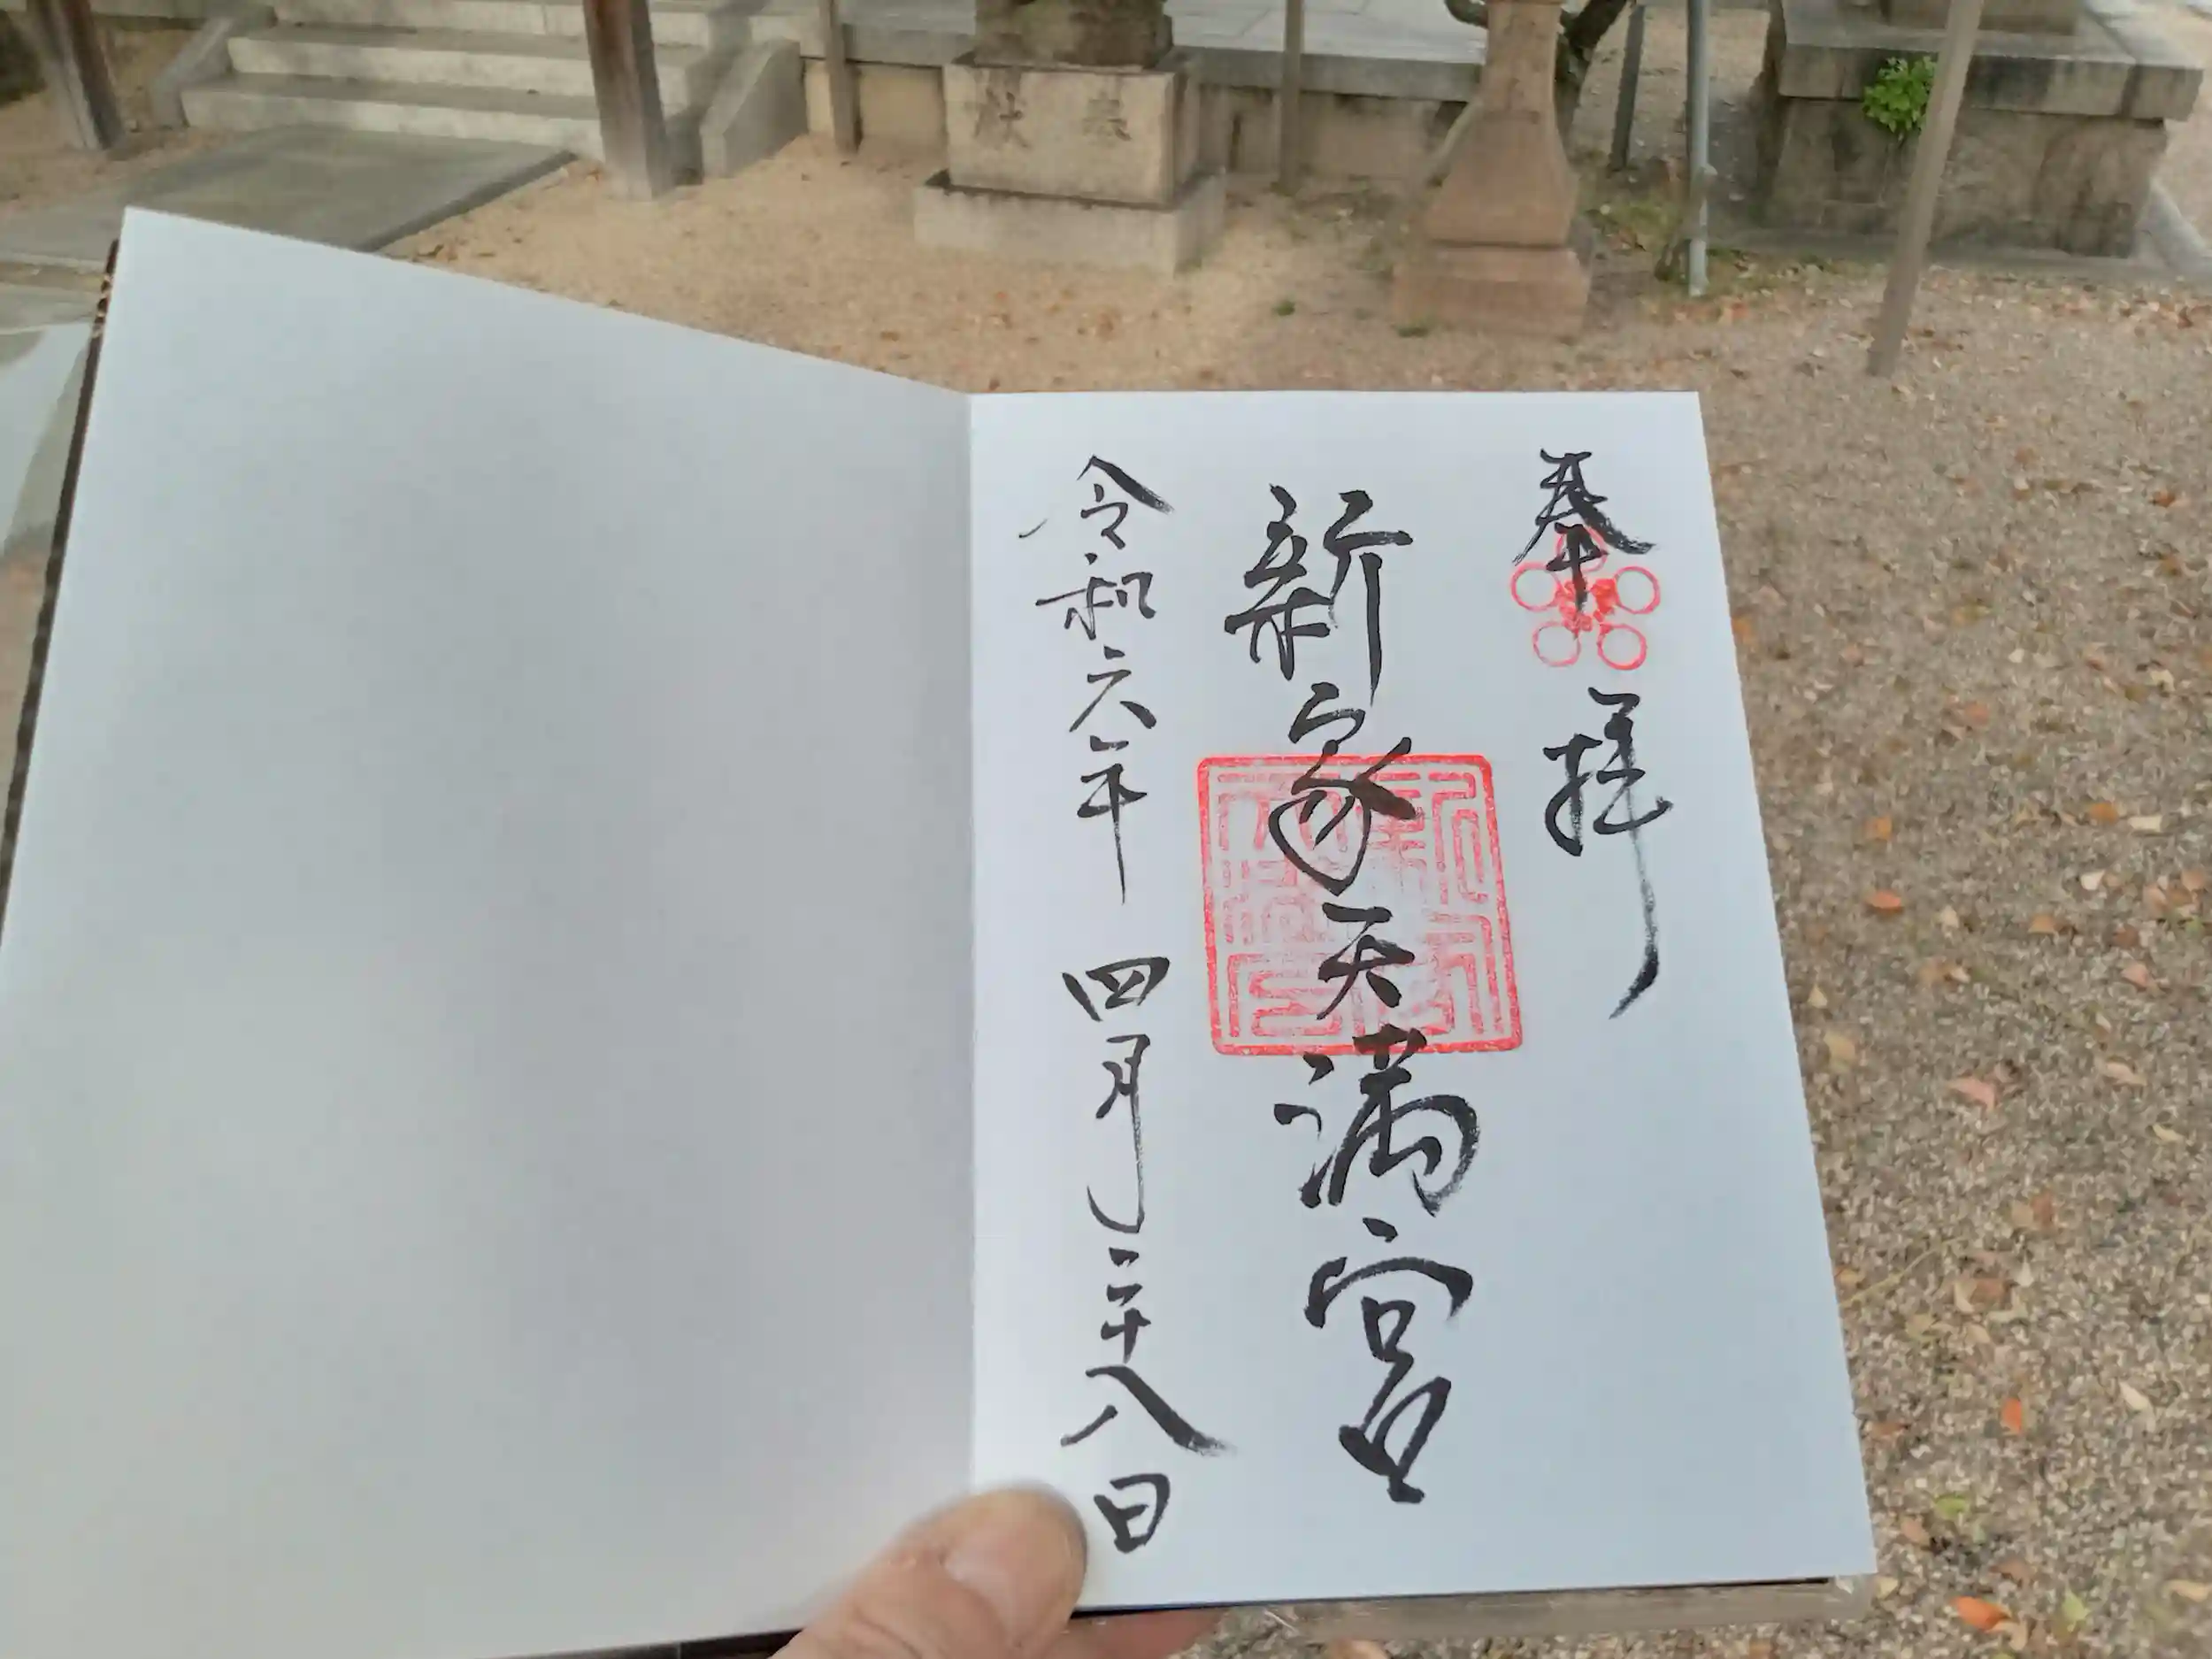 奉拝
新家天満宮
令和六年 四月二十八日
奉献